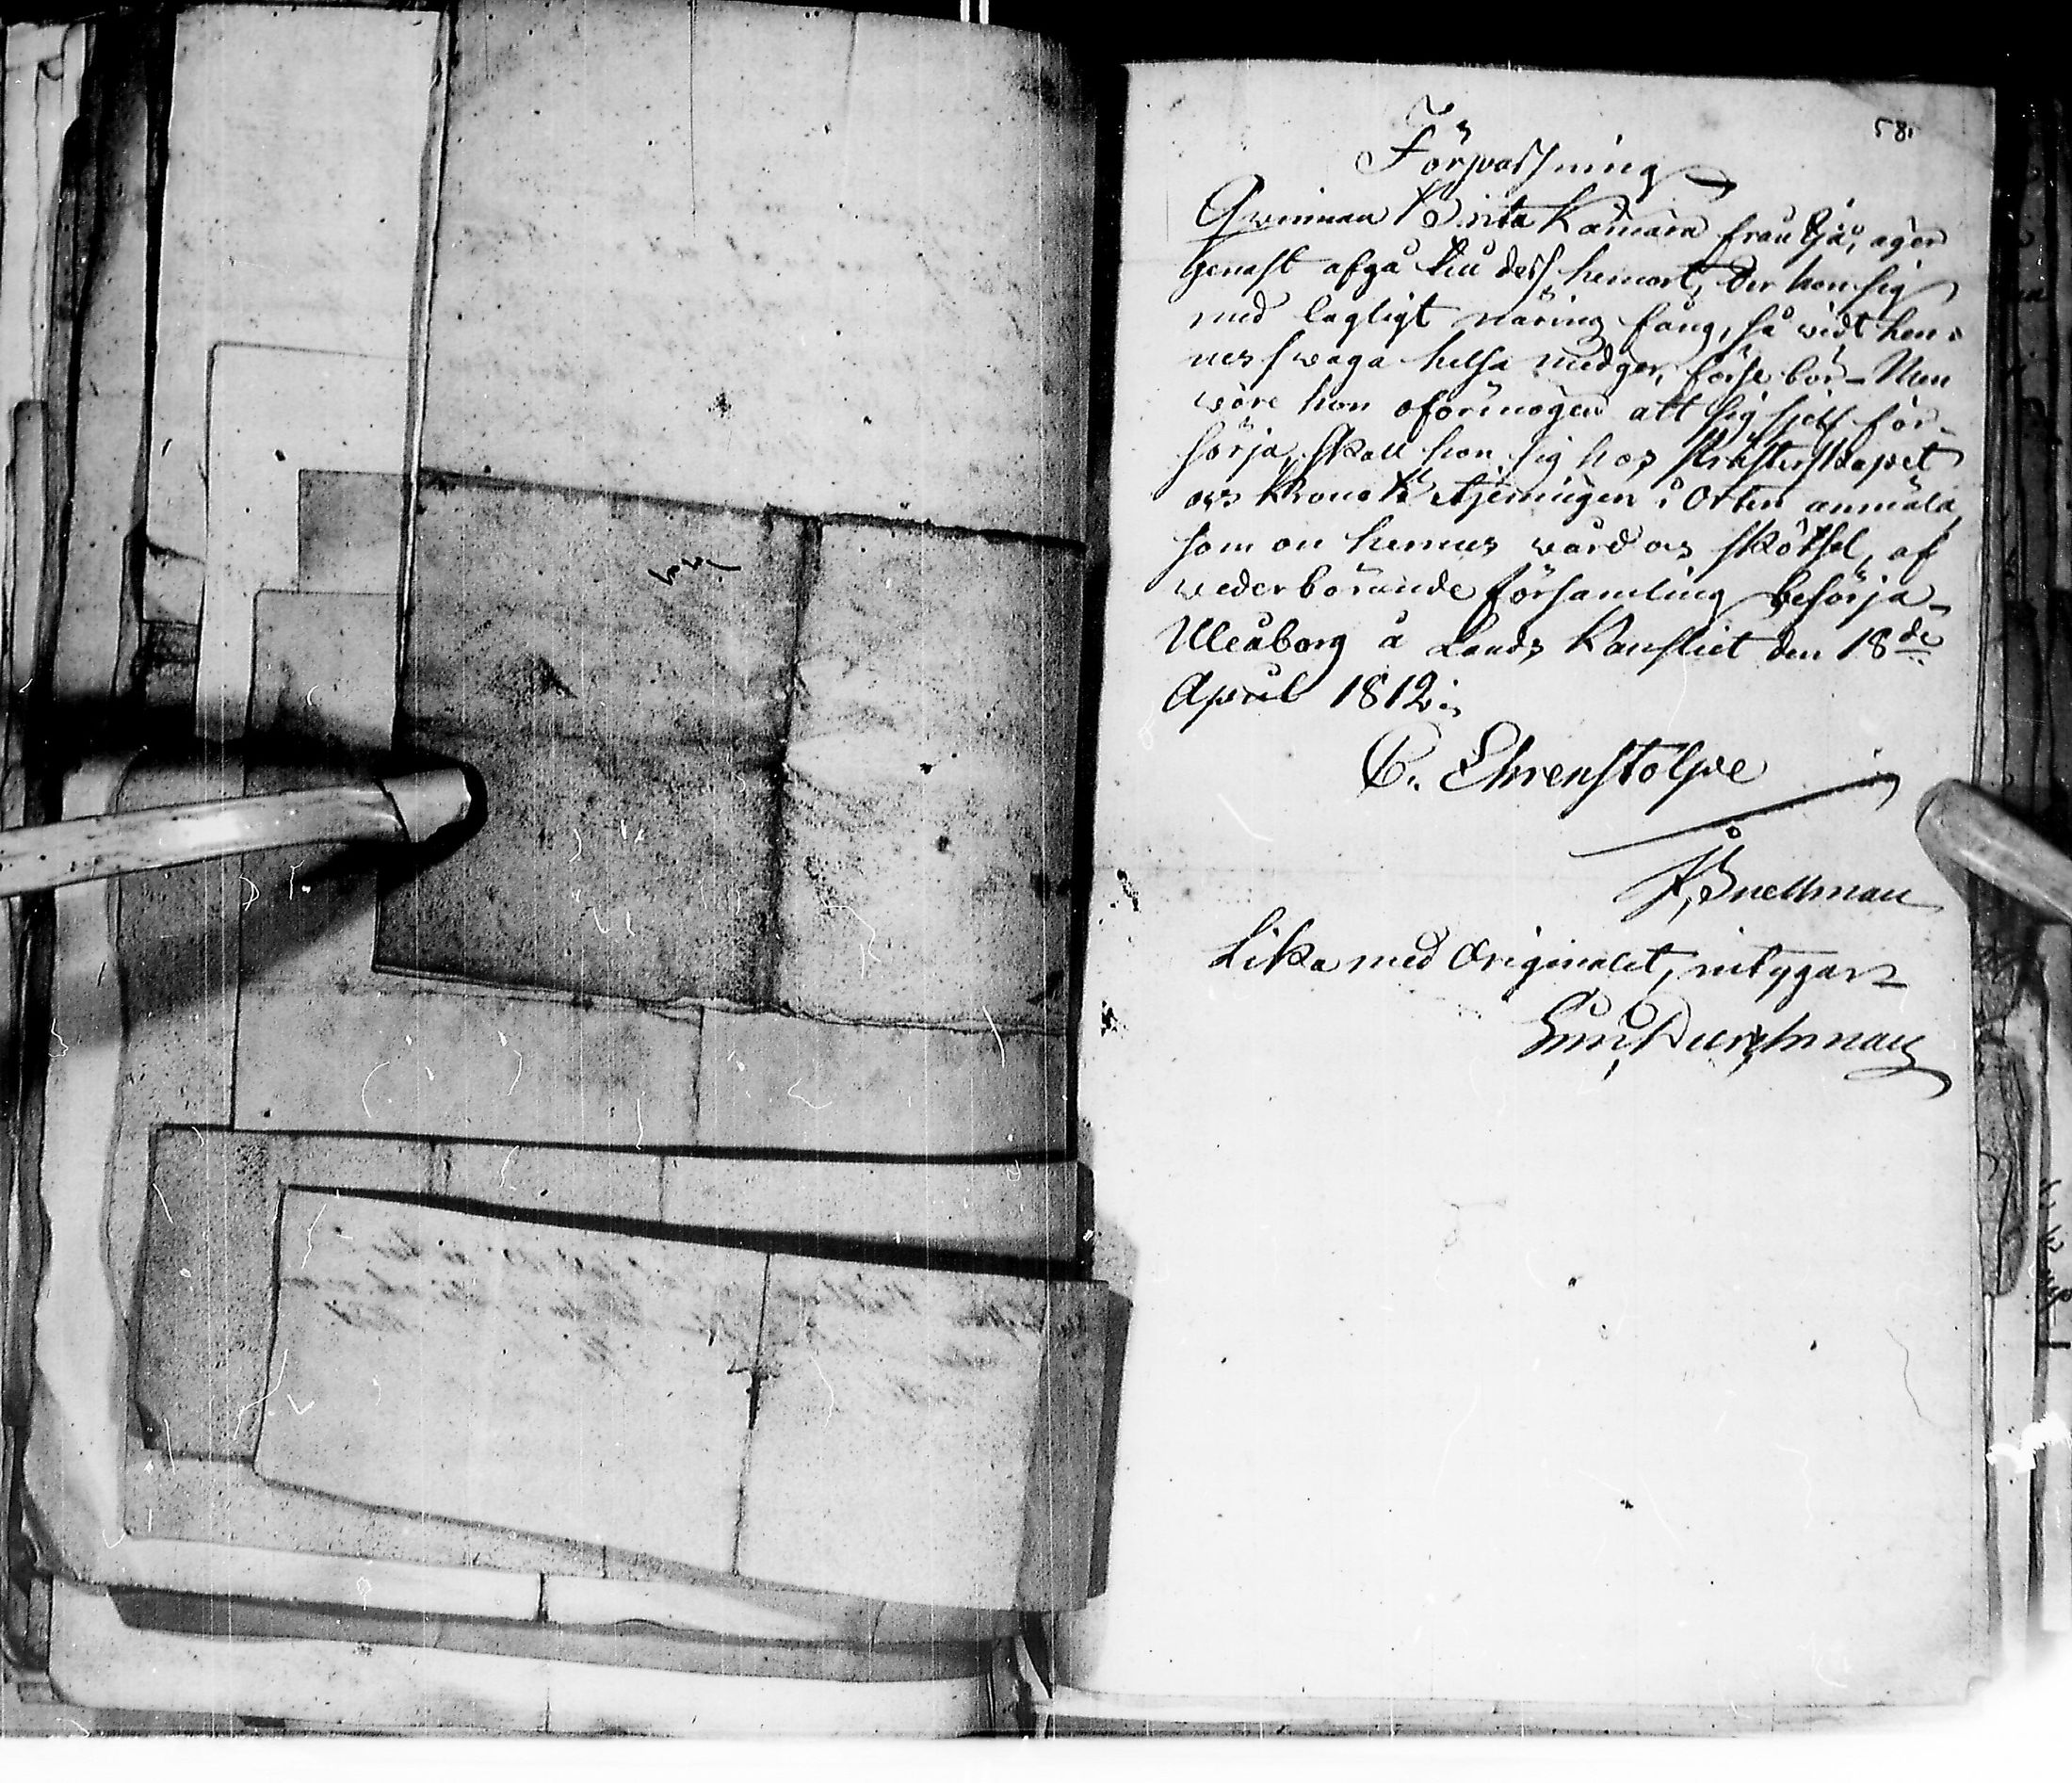 58.
Förpassning
Qwinnan Brita Kämärä från Ijå, äger
genast afgå till dess hemort, der hon sig
med lagligt näring fång, så vidt hen-
nes swaga helsa medger, förse bör – Men
vore hon oförmögen att sig sjelf för-
sörja, skall hon sig hos Presterskapet
och Krono Betjeningen i Orten anmäla,
som om hennes wård och skötsel, af
wederbörande församling besörja –
Uleåborg å Lands Kansliet den 18de
April 1812.
C. Ehrenstolpe
Snellman
Lika med Originalet, intygar